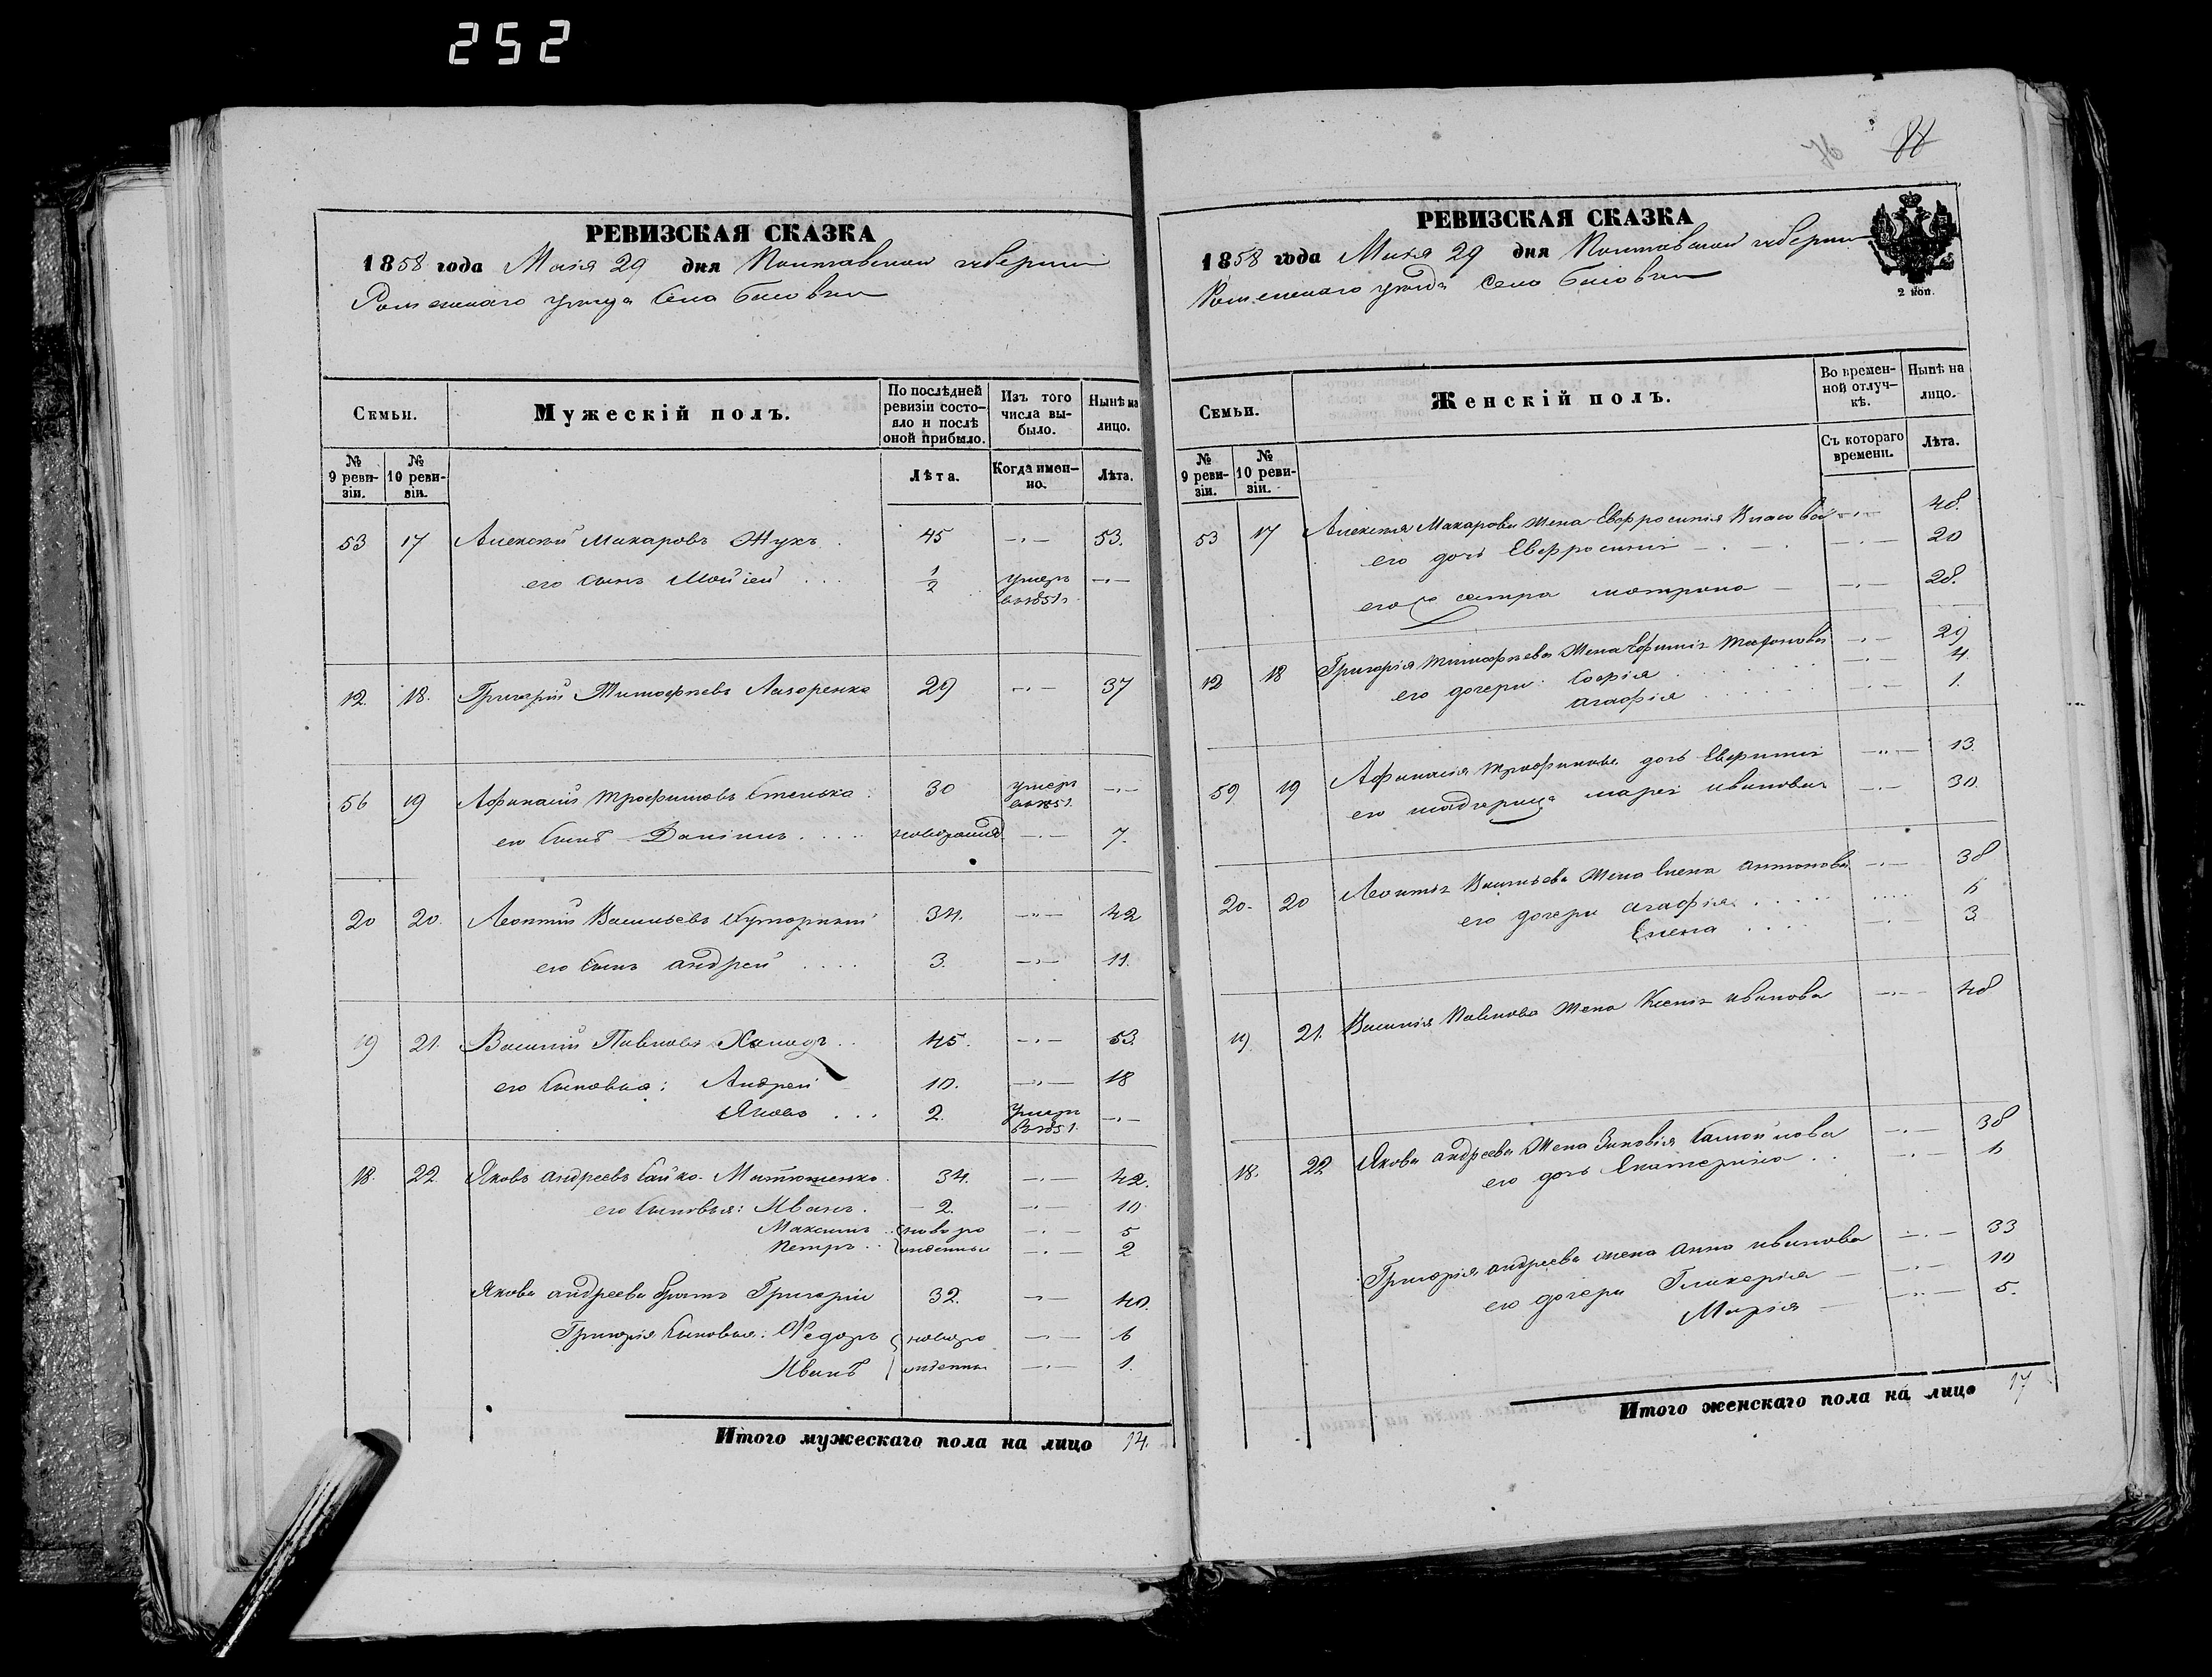 252
РЕВИЗСКАЯ СКАЗКА
1858 года Мая 29 дня Полтавской губернии
Роменскаго уезда Села Бисовки
Семьи.
Мужескій полъ.
По послѣдней ревизіи состояло и послѣ оной прибыло.
Изъ того числа выбыло.
Нынѣ на лицо.
№ 9 ревизіи.
№ 10 ревизіи.
Лѣта.
Когда именно.
Лѣта.
53 17 Алексѣй Макаровъ Жукъ 45 53.
его сынъ Мойсей 1/2 умеръ в 1851.
12. 18. Григорій Тимофѣевъ Лазоренко 29 37
56 19 Афанасій Трофимовъ Стенько 30 умеръ в 1851.
его сынъ Даніилъ новорожд. 7.
20 20. Леонтій Васильевъ 34. 42
его сынъ андрей 3. 11.
19 21. Василій Павловъ 45. 53.
его сыновья: Андрей 10. 18
Яковъ 2. умеръ в 1851.
18. 22 Яковъ андреевъ Сайко-Матюшенко 34. 42.
его сыновья: Иванъ 2. 10
Максимъ новоро 5
Петръ жденные 2
Якова андреева братъ Григорій 32. 40.
Григорія сыновья: Федоръ новоро 6
Иванъ жденные 1.
Итого мужескаго пола на лицо 14.
РЕВИЗСКАЯ СКАЗКА
1858 года Мая 29 дня Полтавской губернии
Роменскаго уезда Села Бисовки
2 коп.
Семьи.
Женскій полъ.
Во временной отлучкѣ.
Нынѣ на лицо.
№ 9 ревизіи.
№ 10 ревизіи.
Съ котораго времени.
Лѣта.
53 17 Алексѣя Макарова жена Евфросинія Власова 48.
его дочь Евфросинія 20
его сестра матрона 28.
12 18 Григорія Тимофѣева жена 29
его дочери: Софія 4.
агафія 1.
59 19 Афанасія Трофимова дочь 13.
его марія иванова 30.
20. 20 Леонтія Васильева жена Елена антонова 38
его дочери агафія 6
Елена 3
19 21. Василія Павлова жена Ксенія иванова 48
18. 22 Якова андреева жена Зиновія Самойлова 38
его дочь Екатерина 6
Григорія андреева жена анна иванова 33
его дочери Гликерія 10
Марія 5.
Итого женскаго пола на лицо 17